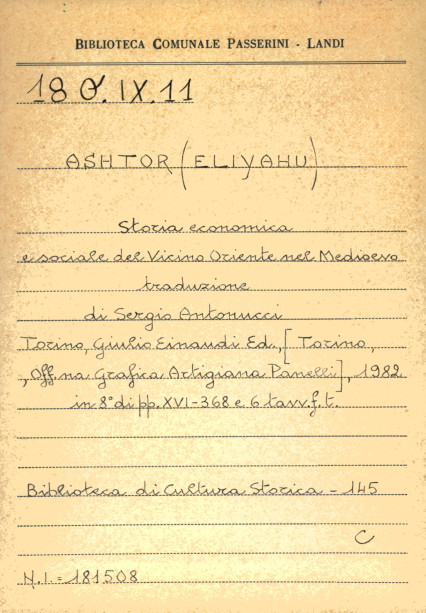 BIBLIOTECA COMUNALE PASSERINI - LANDI
18 O. IX. 11
ASHTOR (ELIYAHU)
Storia economica
e sociale del Vicino Oriente nel Medioevo
traduzione
di Sergio Antonucci
Torino, Giulio Einaudi Ed., [Torino,
, Off.na Grafica Artigiana Panelli], 1982
in 8° di pp. XVI-368 e 6 tavv. f. t.
Biblioteca di Cultura Storica - 145
C
N.I. = 181508